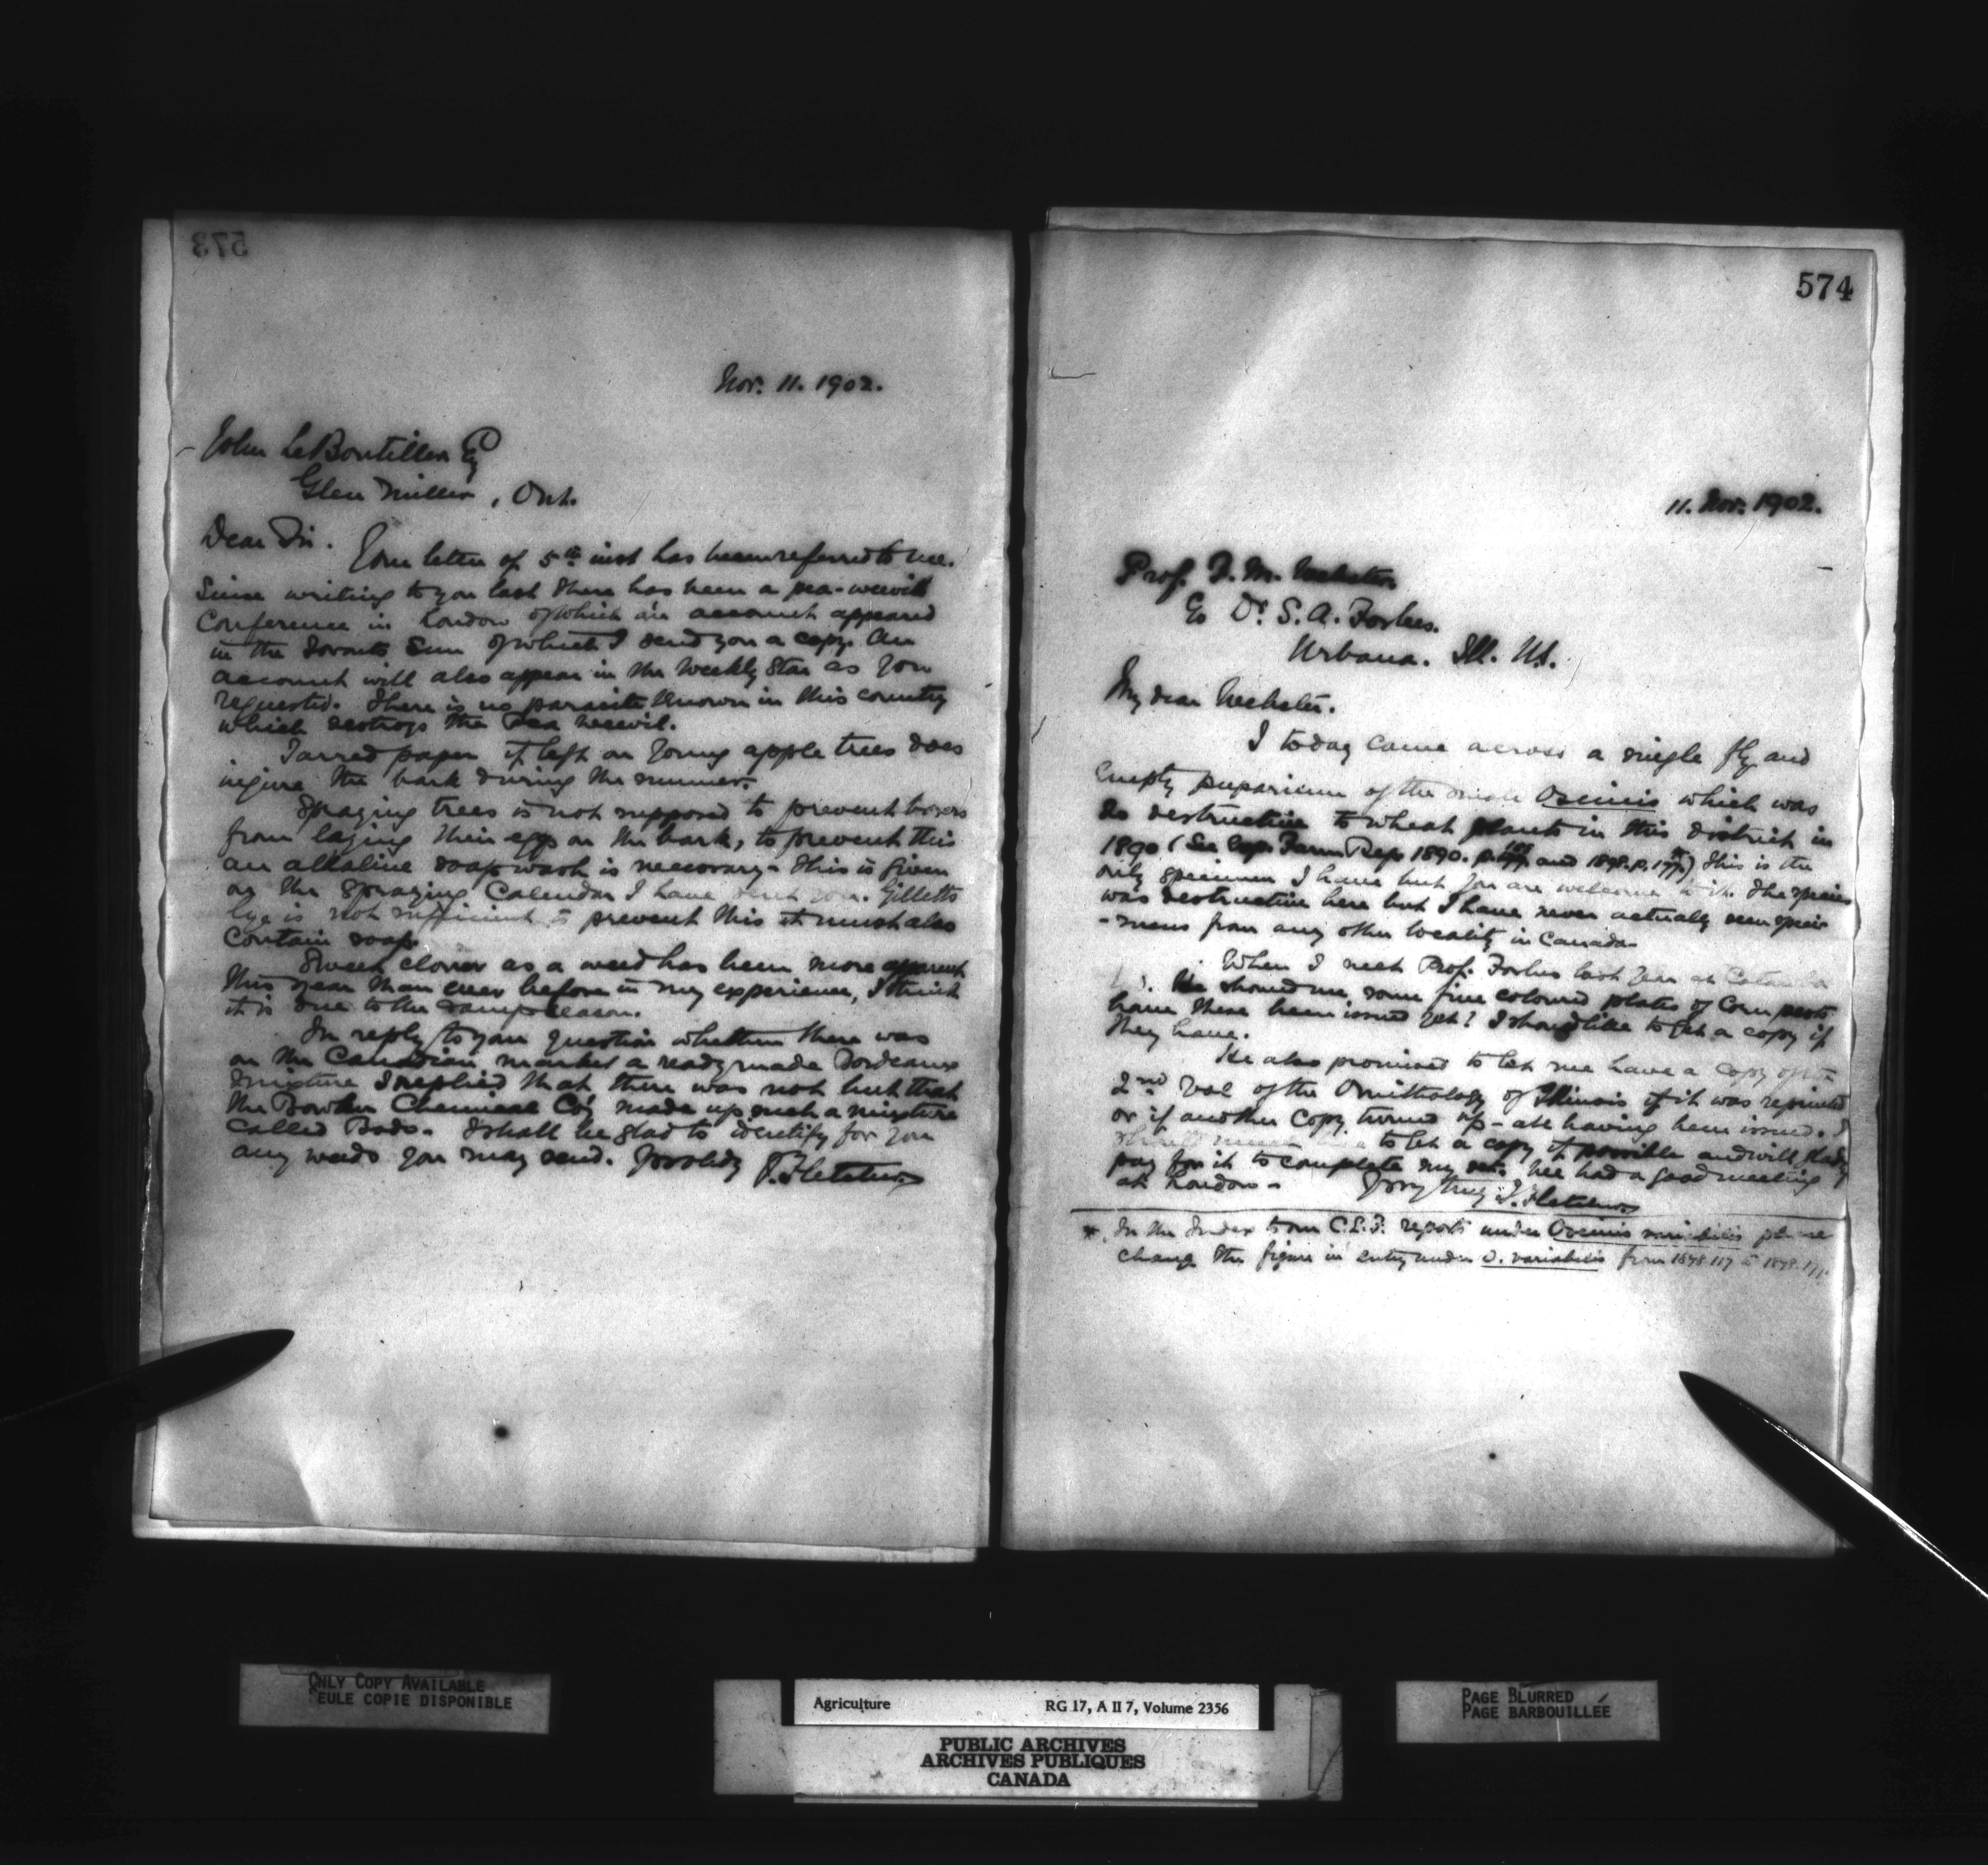 573
Nov. 11. 1902.
John LeBoutillier Esq
Glen Miller, Ont.
Dear Sir. Your letter of 5th inst has been referred to me.
Since writing to you last there has been a pea-weevil
Conference in London of which an account appeared
in the Toronto Sun of which I send you a copy. An
account will also appear in the Weekly Star as you
requested. There is no parasite known in this country
which destroys the Pea weevil.
Tarred paper if left on young apple trees does
injure the bark during the summer.
Spraying trees is not supposed to prevent borers
from laying their eggs on the bark, to prevent this
an alkaline soap wash is necessary - this is given
on the Spraying Calendar I have sent you. Gilletts
lye is not sufficient to prevent this it must also
contain soap.
Sweet clover as a weed has been more apparent
this year than ever before in my experience, I think
it is due to the damp season.
In reply to your question whether there was
on the Canadian market a ready made Bordeaux
mixture I replied that there was not but that
the Bowker Chemical Co'y made up such a mixture
called Bodo. I shall be glad to identify for you
any weeds you may send. Yrs truly J. Fletcher
574
11. Nov. 1902.
Prof. F. M. Webster
Co Dr. S. A. Forbes.
Urbana. Ill. U.S.
My dear Webster.
I today came across a single fly and
empty puparium of the Oscinis which was
so destructive to wheat plants in this district in
1890 (See Exp. Farm Rep. 1890. p. and 1898. p. 177*) This is the
only specimen I have but you are welcome to it. The species
was destructive here but I have never actually seen speci-
-mens from any other locality in Canada -
When I met Prof. Forbes last year at Columbia
He showed me some fine coloured plates of Corn pests
have these been issued yet? I should like to get a copy if
they have.
He also promised to let me have a copy of the
2nd Vol of the Ornithology of Illinois if it was reprinted
or if another copy turned up - ate having been issued. I
should much like to get a copy if possible and will gladly
pay for it to complete my set. We had a good meeting
at London - Yrs very truly J. Fletcher
*. In the Index to our C.E.F. reports under Oscinis variabilis please
change the figure in entry under O. variabilis from 1898.117 to 1898.177.
ONLY COPY AVAILABLE
SEULE COPIE DISPONIBLE
Agriculture RG 17, A II 7, Volume 2356
PUBLIC ARCHIVES
ARCHIVES PUBLIQUES
CANADA
PAGE BLURRED
PAGE BARBOUILLÉE